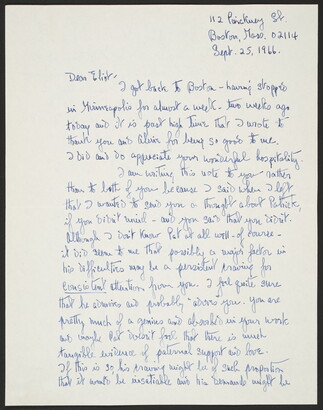 112 Pinckney St.
Boston, Mass. 02114
Sept. 25, 1966.
Dear Eliot -
I got back to Boston - having stopped
in Minneapolis for almost a week - two weeks ago
today and it is past high time that I wrote to
thank you and for being so good to me.
I did and do appreciate your wonderful hospitality.
I am writing this note to you rather
than to both of you because I said when I left
that I wanted to send you a thought about Patrick,
if you didn't mind - and you said that you didn't.
Although I don't know Pat at all well - of course -
it did seem to me that possibly a major factor in
his difficulties may be a persistent craving for
consistent attention from you. I feel quite sure
that he admires and probably "adores" you. You are
pretty much of a genius and absorbed in your work
and maybe Pat doesn't feel that there is much
tangible evidence of paternal support and love.
If this is so his craving might be of such proportion
that it would be insatiable and his demands might be